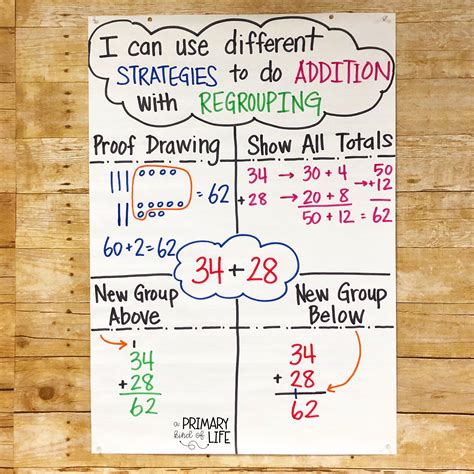 I can use different
STRATEGIES to do ADDITION
with REGROUPING
Proof Drawing
= 62
60+2=62
Show All Totals
34 → 30 + 4 50
+ 28 → 20 + 8 +12
50 + 12 = 62
34+28
New Group
Above
1
34
+ 28
62
New Group
Below
34
+ 28
1
62
a
PRIMARY
kind of LIFE